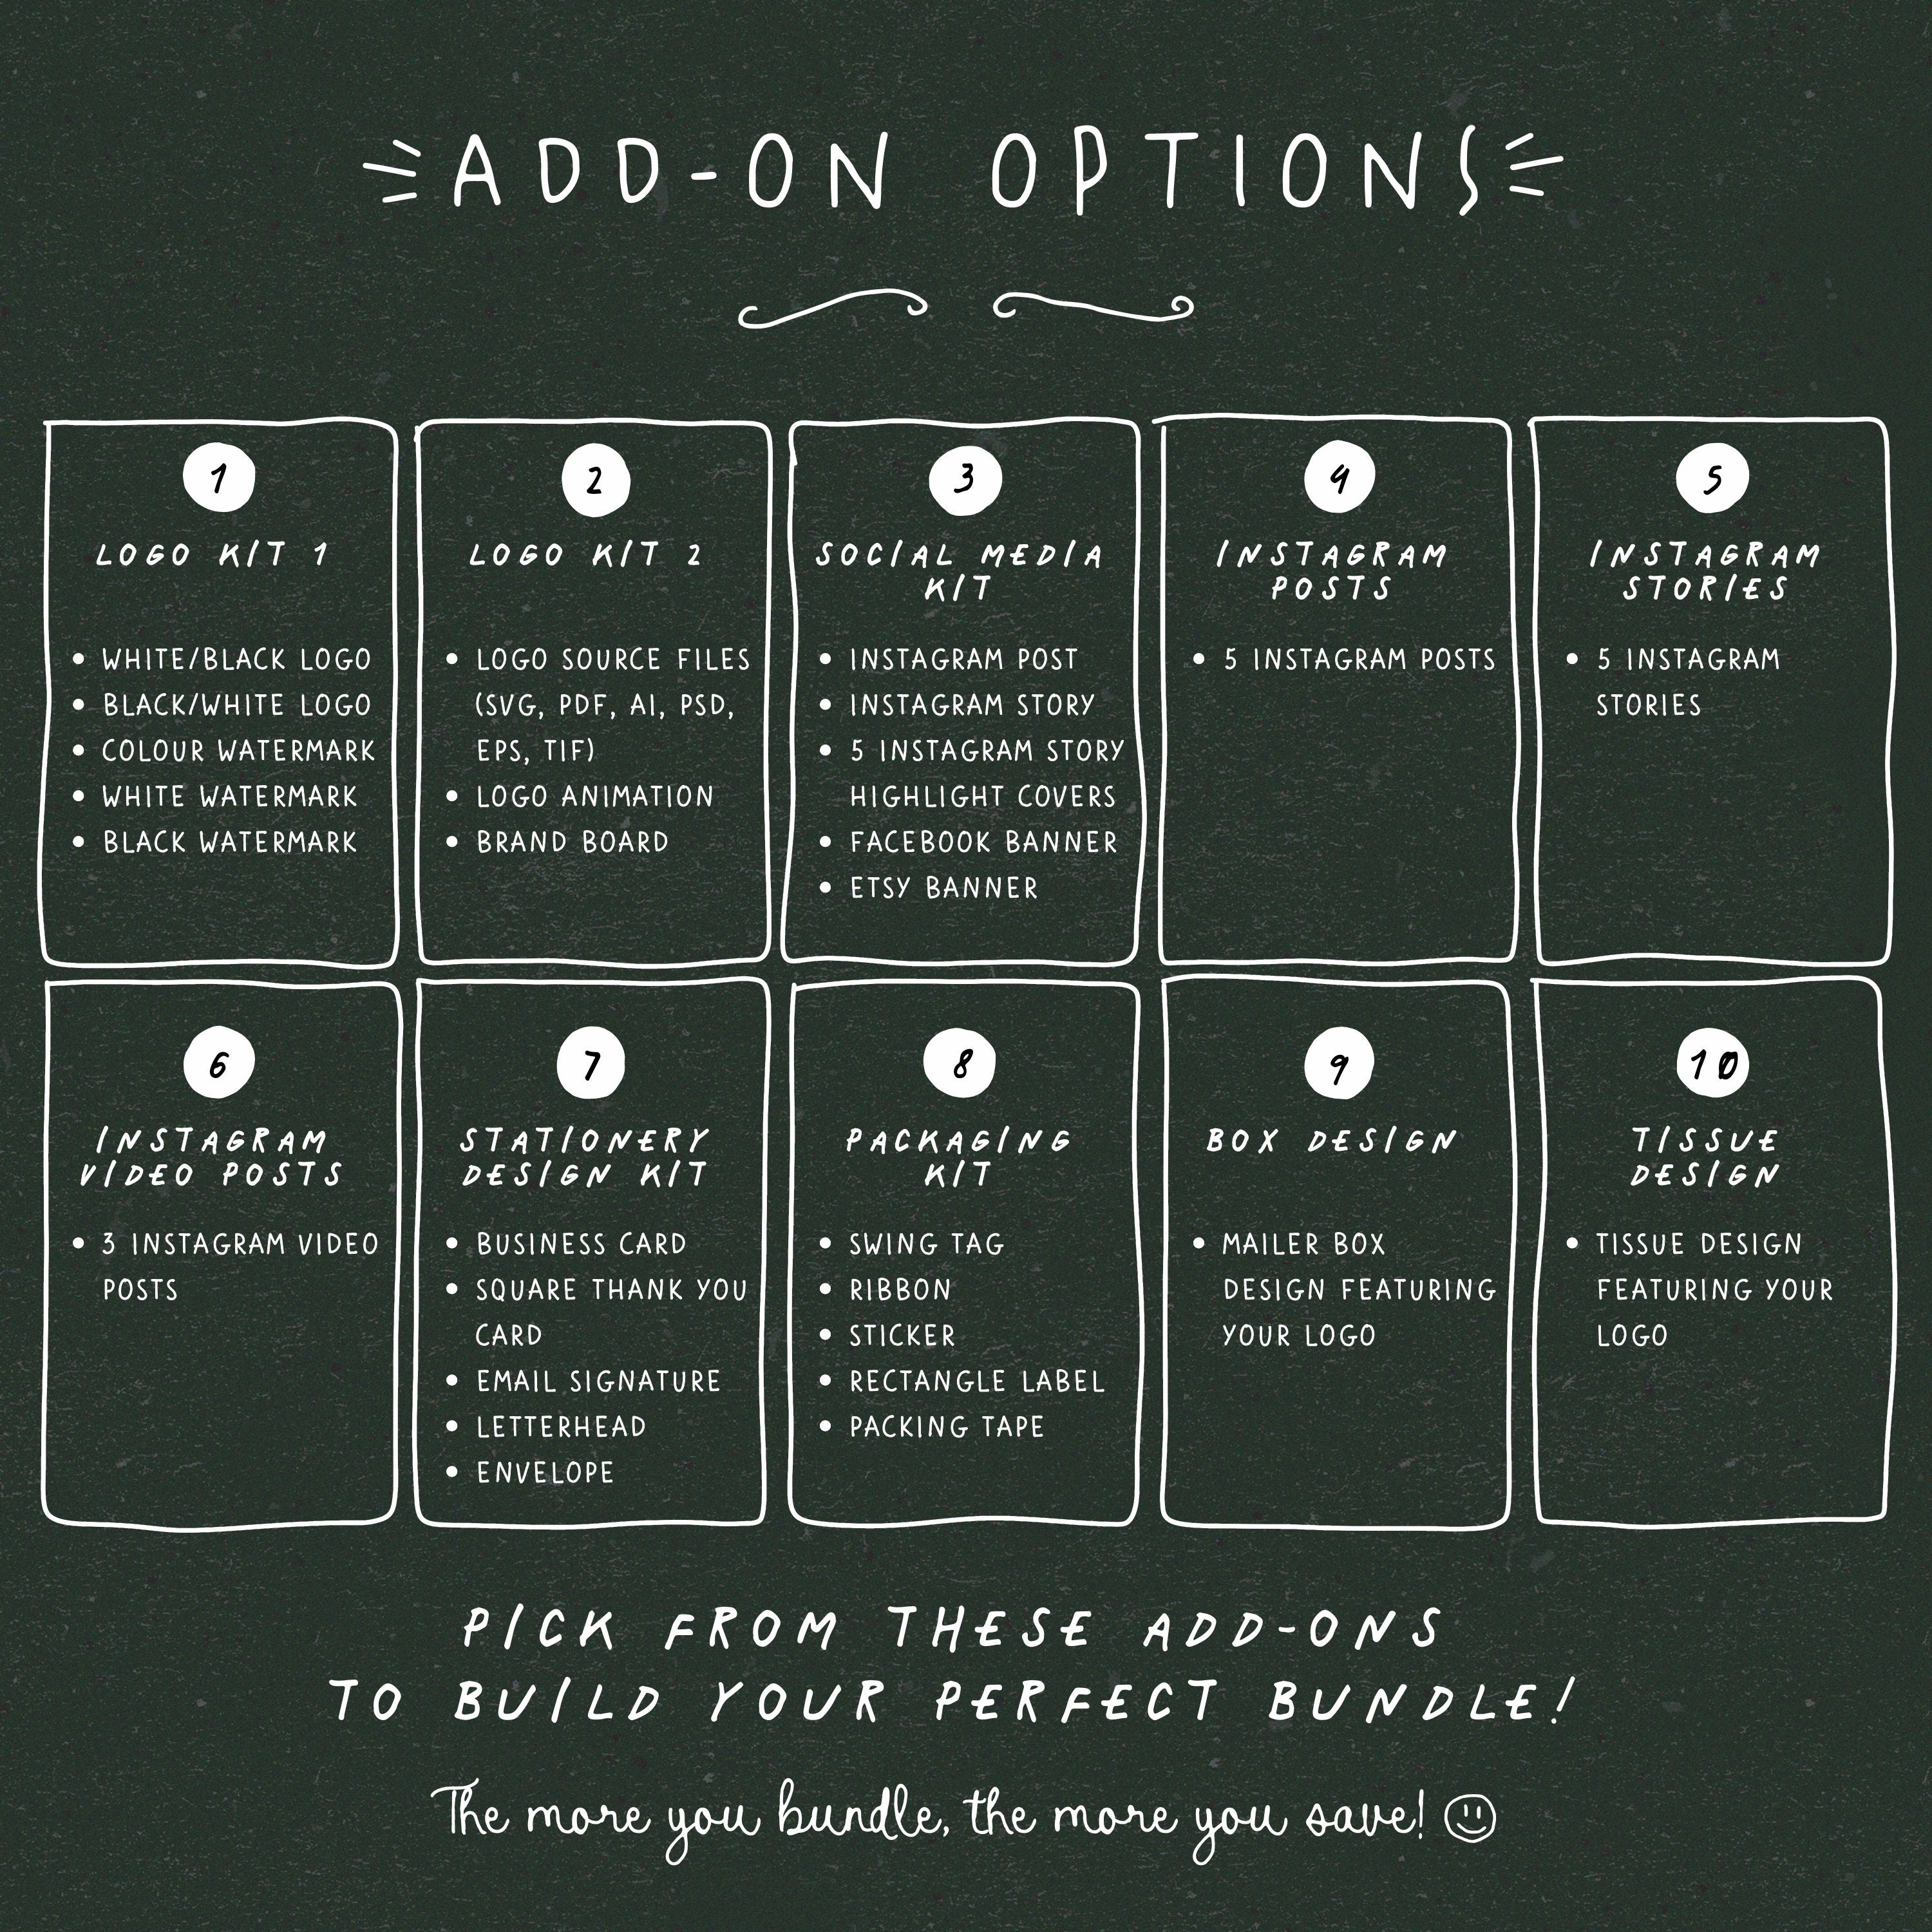 ADD-ON OPTIONS
1
LOGO KIT 1
• WHITE/BLACK LOGO
• BLACK/WHITE LOGO
• COLOUR WATERMARK
• WHITE WATERMARK
• BLACK WATERMARK
2
LOGO KIT 2
• LOGO SOURCE FILES
(SVG, PDF, AI, PSD,
EPS, TIF)
• LOGO ANIMATION
• BRAND BOARD
3
SOCIAL MEDIA
KIT
• INSTAGRAM POST
• INSTAGRAM STORY
• 5 INSTAGRAM STORY
HIGHLIGHT COVERS
• FACEBOOK BANNER
• ETSY BANNER
4
INSTAGRAM
POSTS
• 5 INSTAGRAM POSTS
5
INSTAGRAM
STORIES
• 5 INSTAGRAM
STORIES
6
INSTAGRAM
VIDEO POSTS
• 3 INSTAGRAM VIDEO
POSTS
7
STATIONERY
DESIGN KIT
• BUSINESS CARD
• SQUARE THANK YOU
CARD
• EMAIL SIGNATURE
• LETTERHEAD
• ENVELOPE
8
PACKAGING
KIT
• SWING TAG
• RIBBON
• STICKER
• RECTANGLE LABEL
• PACKING TAPE
9
BOX DESIGN
• MAILER BOX
DESIGN FEATURING
YOUR LOGO
10
TISSUE
DESIGN
• TISSUE DESIGN
FEATURING YOUR
LOGO
PICK FROM THESE ADD-ONS
TO BUILD YOUR PERFECT BUNDLE!
The more you bundle, the more you save! ☺